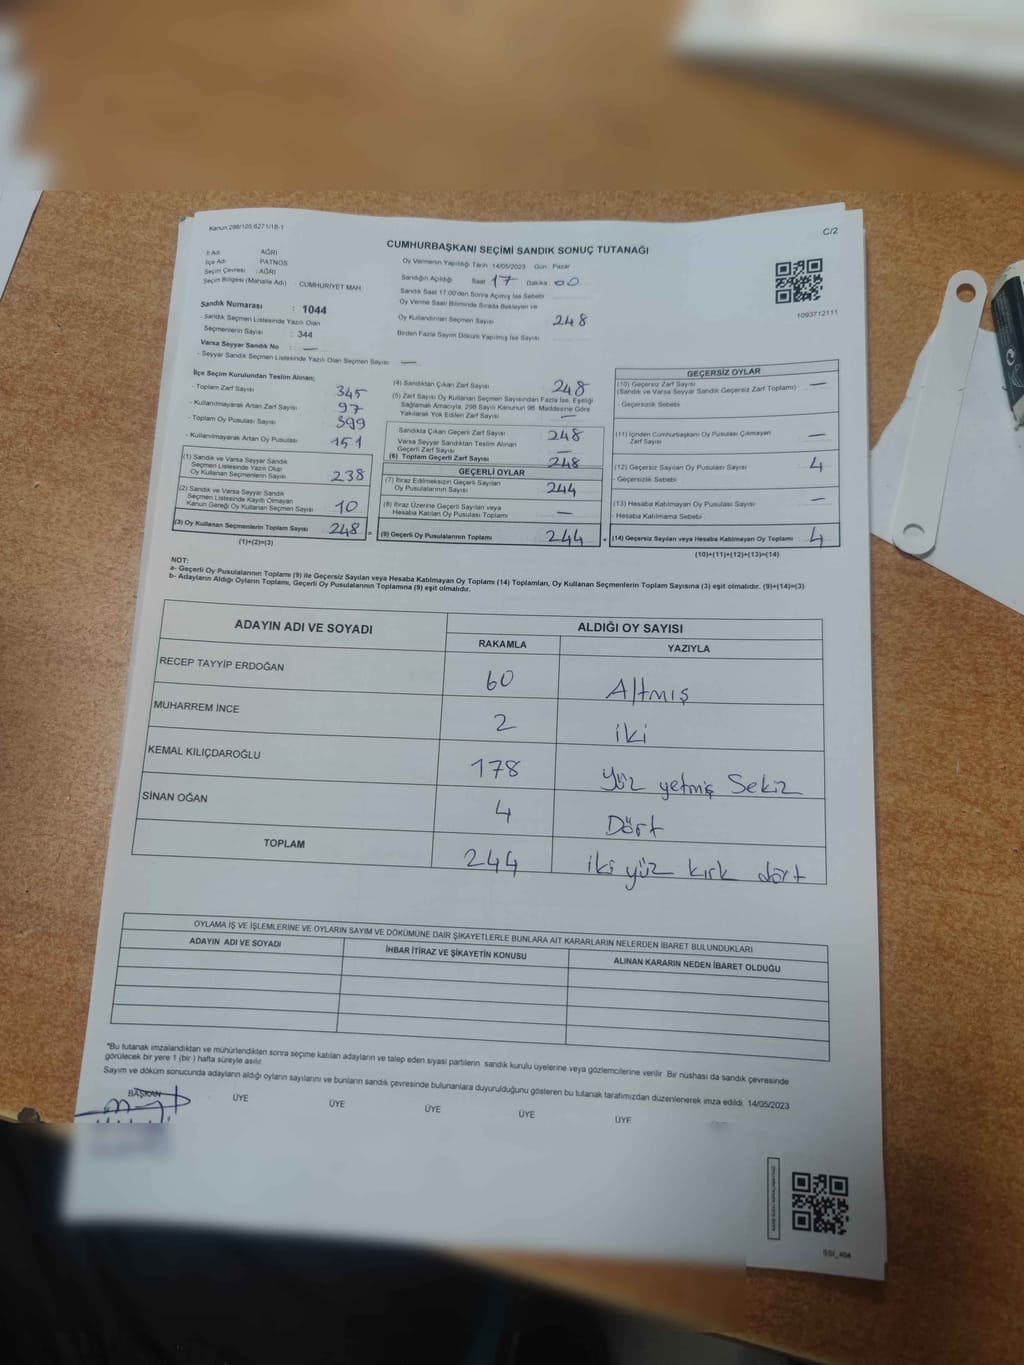 Kanun:298/105 6271/18-1
C/2
CUMHURBAŞKANI SEÇİMİ SANDIK SONUÇ TUTANAĞI
İl Adı : AĞRI
İlçe Adı : PATNOS
Seçim Çevresi : AĞRI
Seçim Bölgesi (Mahalle Adı) : CUMHURİYET MAH
Sandık Numarası : 1044
- Sandık Seçmen Listesinde Yazılı Olan
Seçmenlerin Sayısı : 344
Varsa Seyyar Sandık No : —
- Seyyar Sandık Seçmen Listesinde Yazılı Olan Seçmen Sayısı —
Oy Vermenin Yapıldığı Tarih 14/05/2023 Gün : Pazar
Sandığın Açıldığı Saat 17 Dakika 00
Sandık Saat 17.00'den Sonra Açılmış İse Sebebi
Oy Verme Saati Bitiminde Sırada Bekleyen ve
Oy Kullandırılan Seçmen Sayısı 248
Birden Fazla Sayım Döküm Yapılmış İse Sayısı
1093712111
İlçe Seçim Kurulundan Teslim Alınan;
- Toplam Zarf Sayısı 345
- Kullanılmayarak Artan Zarf Sayısı 97
- Toplam Oy Pusulası Sayısı 399
- Kullanılmayarak Artan Oy Pusulası 151
(1) Sandık ve Varsa Seyyar Sandık
Seçmen Listesinde Yazılı Olup
Oy Kullanan Seçmenlerin Sayısı 238
(2) Sandık ve Varsa Seyyar Sandık
Seçmen Listesinde Kayıtlı Olmayan
Kanun Gereği Oy Kullanan Seçmen Sayısı 10
(3) Oy Kullanan Seçmenlerin Toplam Sayısı 248 =
(1)+(2)=(3)
(4) Sandıktan Çıkan Zarf Sayısı 248
(5) Zarf Sayısı Oy Kullanan Seçmen Sayısından Fazla İse, Eşitliği
Sağlamak Amacıyla; 298 Sayılı Kanunun 98. Maddesine Göre
Yakılarak Yok Edilen Zarf Sayısı —
Sandıkta Çıkan Geçerli Zarf Sayısı 248
Varsa Seyyar Sandıktan Teslim Alınan
Geçerli Zarf Sayısı —
(6) Toplam Geçerli Zarf Sayısı 248
GEÇERLİ OYLAR
(7) İtiraz Edilmeksizin Geçerli Sayılan
Oy Pusulalarının Sayısı 244
(8) İtiraz Üzerine Geçerli Sayılan veya
Hesaba Katılan Oy Pusulası Toplamı —
(9) Geçerli Oy Pusulalarının Toplamı 244 +
GEÇERSİZ OYLAR
(10) Geçersiz Zarf Sayısı —
(Sandık ve Varsa Seyyar Sandık Geçersiz Zarf Toplamı)
- Geçersizlik Sebebi
(11) İçinden Cumhurbaşkanı Oy Pusulası Çıkmayan
Zarf Sayısı —
(12) Geçersiz Sayılan Oy Pusulası Sayısı 4
- Geçersizlik Sebebi
(13) Hesaba Katılmayan Oy Pusulası Sayısı —
- Hesaba Katılmama Sebebi
(14) Geçersiz Sayılan veya Hesaba Katılmayan Oy Toplamı 4
(10)+(11)+(12)+(13)=(14)
NOT:
a- Geçerli Oy Pusulalarının Toplamı (9) ile Geçersiz Sayılan veya Hesaba Katılmayan Oy Toplamı (14) Toplamları, Oy Kullanan Seçmenlerin Toplam Sayısına (3) eşit olmalıdır. (9)+(14)=(3)
b- Adayların Aldığı Oyların Toplamı, Geçerli Oy Pusulalarının Toplamına (9) eşit olmalıdır.
ADAYIN ADI VE SOYADI
ALDIĞI OY SAYISI
RAKAMLA YAZIYLA
RECEP TAYYİP ERDOĞAN 60 Altmış
MUHARREM İNCE 2 iki
KEMAL KILIÇDAROĞLU 178 Yüz yetmiş Sekiz
SİNAN OĞAN 4 Dört
TOPLAM 244 iki yüz kırk dört
OYLAMA İŞ VE İŞLEMLERİNE VE OYLARIN SAYIM VE DÖKÜMÜNE DAİR ŞİKAYETLERLE BUNLARA AİT KARARLARIN NELERDEN İBARET BULUNDUKLARI
ADAYIN ADI VE SOYADI İHBAR İTİRAZ VE ŞİKAYETİN KONUSU ALINAN KARARIN NEDEN İBARET OLDUĞU
*Bu tutanak imzalandıktan ve mühürlendikten sonra seçime katılan adayların ve talep eden siyasi partilerin sandık kurulu üyelerine veya gözlemcilerine verilir .Bir nüshası da sandık çevresinde
görülecek bir yere 1 (bir ) hafta süreyle asılır.
Sayım ve döküm sonucunda adayların aldığı oyların sayılarını ve bunların sandık çevresinde bulunanlara duyurulduğunu gösteren bu tutanak tarafımızdan düzenlenerek imza edildi. 14/05/2023
BAŞKAN ÜYE ÜYE ÜYE ÜYE ÜYE
SSI_404